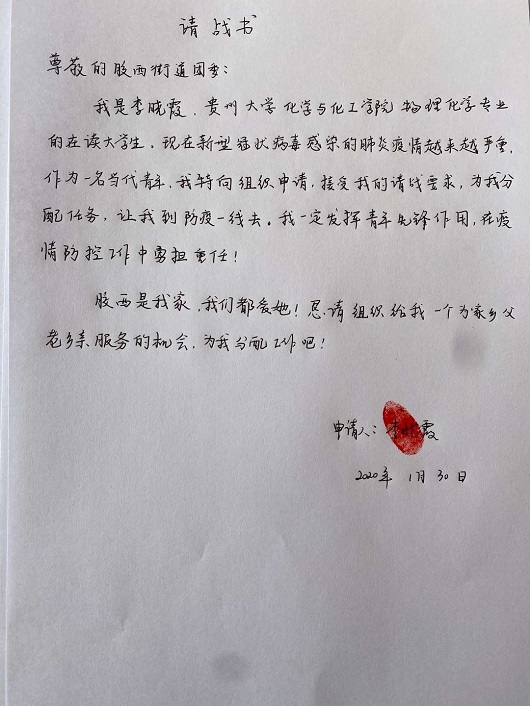 请战书
尊敬的胶西街道团委：
我是李晓霞，贵州大学化学与化工学院物理化学专业
的在读大学生。现在新型冠状病毒感染的肺炎疫情越来越严重，
作为一名当代青年，我特向组织申请，接受我的请战要求，为我分
配任务，让我到防疫一线去。我一定发挥青年先锋作用，在疫
情防控工作中勇担重任！
胶西是我家，我们都爱她！恳请组织给我一个为家乡父
老乡亲服务的机会，为我分配工作吧！
申请人：李晓霞
2020年 1月 30日